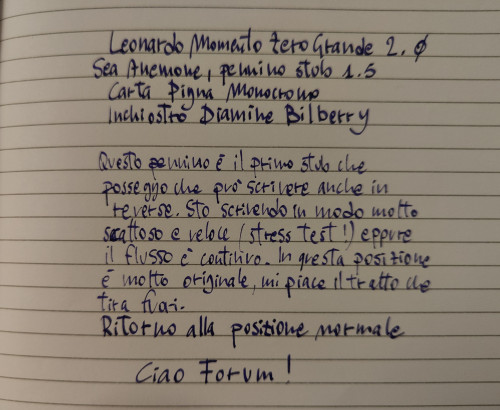 Leonardo Momento Zero Grande 2.0
Sea Anemone, pennino stub 1.5
Carta Pigna Monocromo
Inchiostro Diamine Bilberry
Questo pennino è il primo stub che
posseggo che può scrivere anche in
reverse. Sto scrivendo in modo molto
scattoso e veloce (stress test!) eppure
il flusso è continuo. In questa posizione
è molto originale, mi piace il tratto che
tira fuori.
Ritorno alla posizione normale
Ciao Forum!